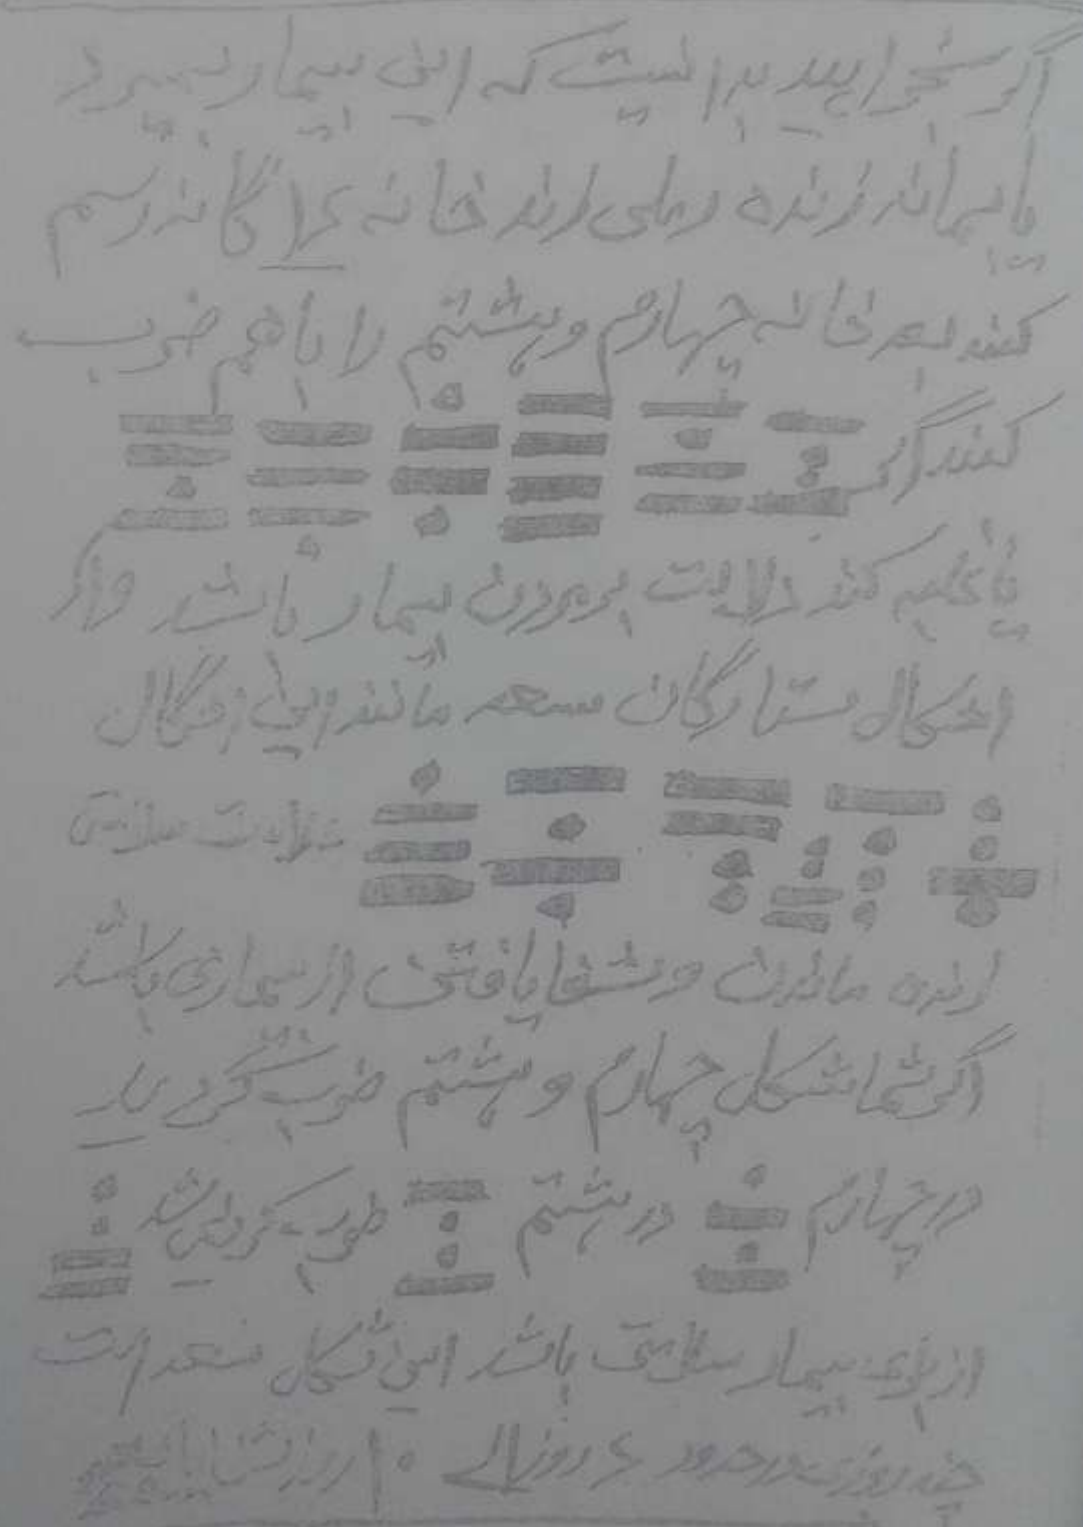 اگر بخواهید بدانیت که این بیمار بمیرد
یا بماند زنده رملی زند خانه ۱۶ گانه رسم
کنند بعد خانه چهارم و هشتم را با هم ضرب
کنند اگر
یا غلبه کند دلالت بر مردن بیمار باشد و اگر
اشکال ستارگان سعد مانند این اشکال
دلالت سلامتی
زنده ماندن و شفا یافتن از بیماری باشد
اگر شما شکل چهارم و هشتم ضرب کردید
در چهارم در هشتم ضرب کردی شد
از برای بیمار سلامتی باشد این شکل سعد است
چند روزی در حدود ۶ روز الی ۱۰ روز شفا یابد